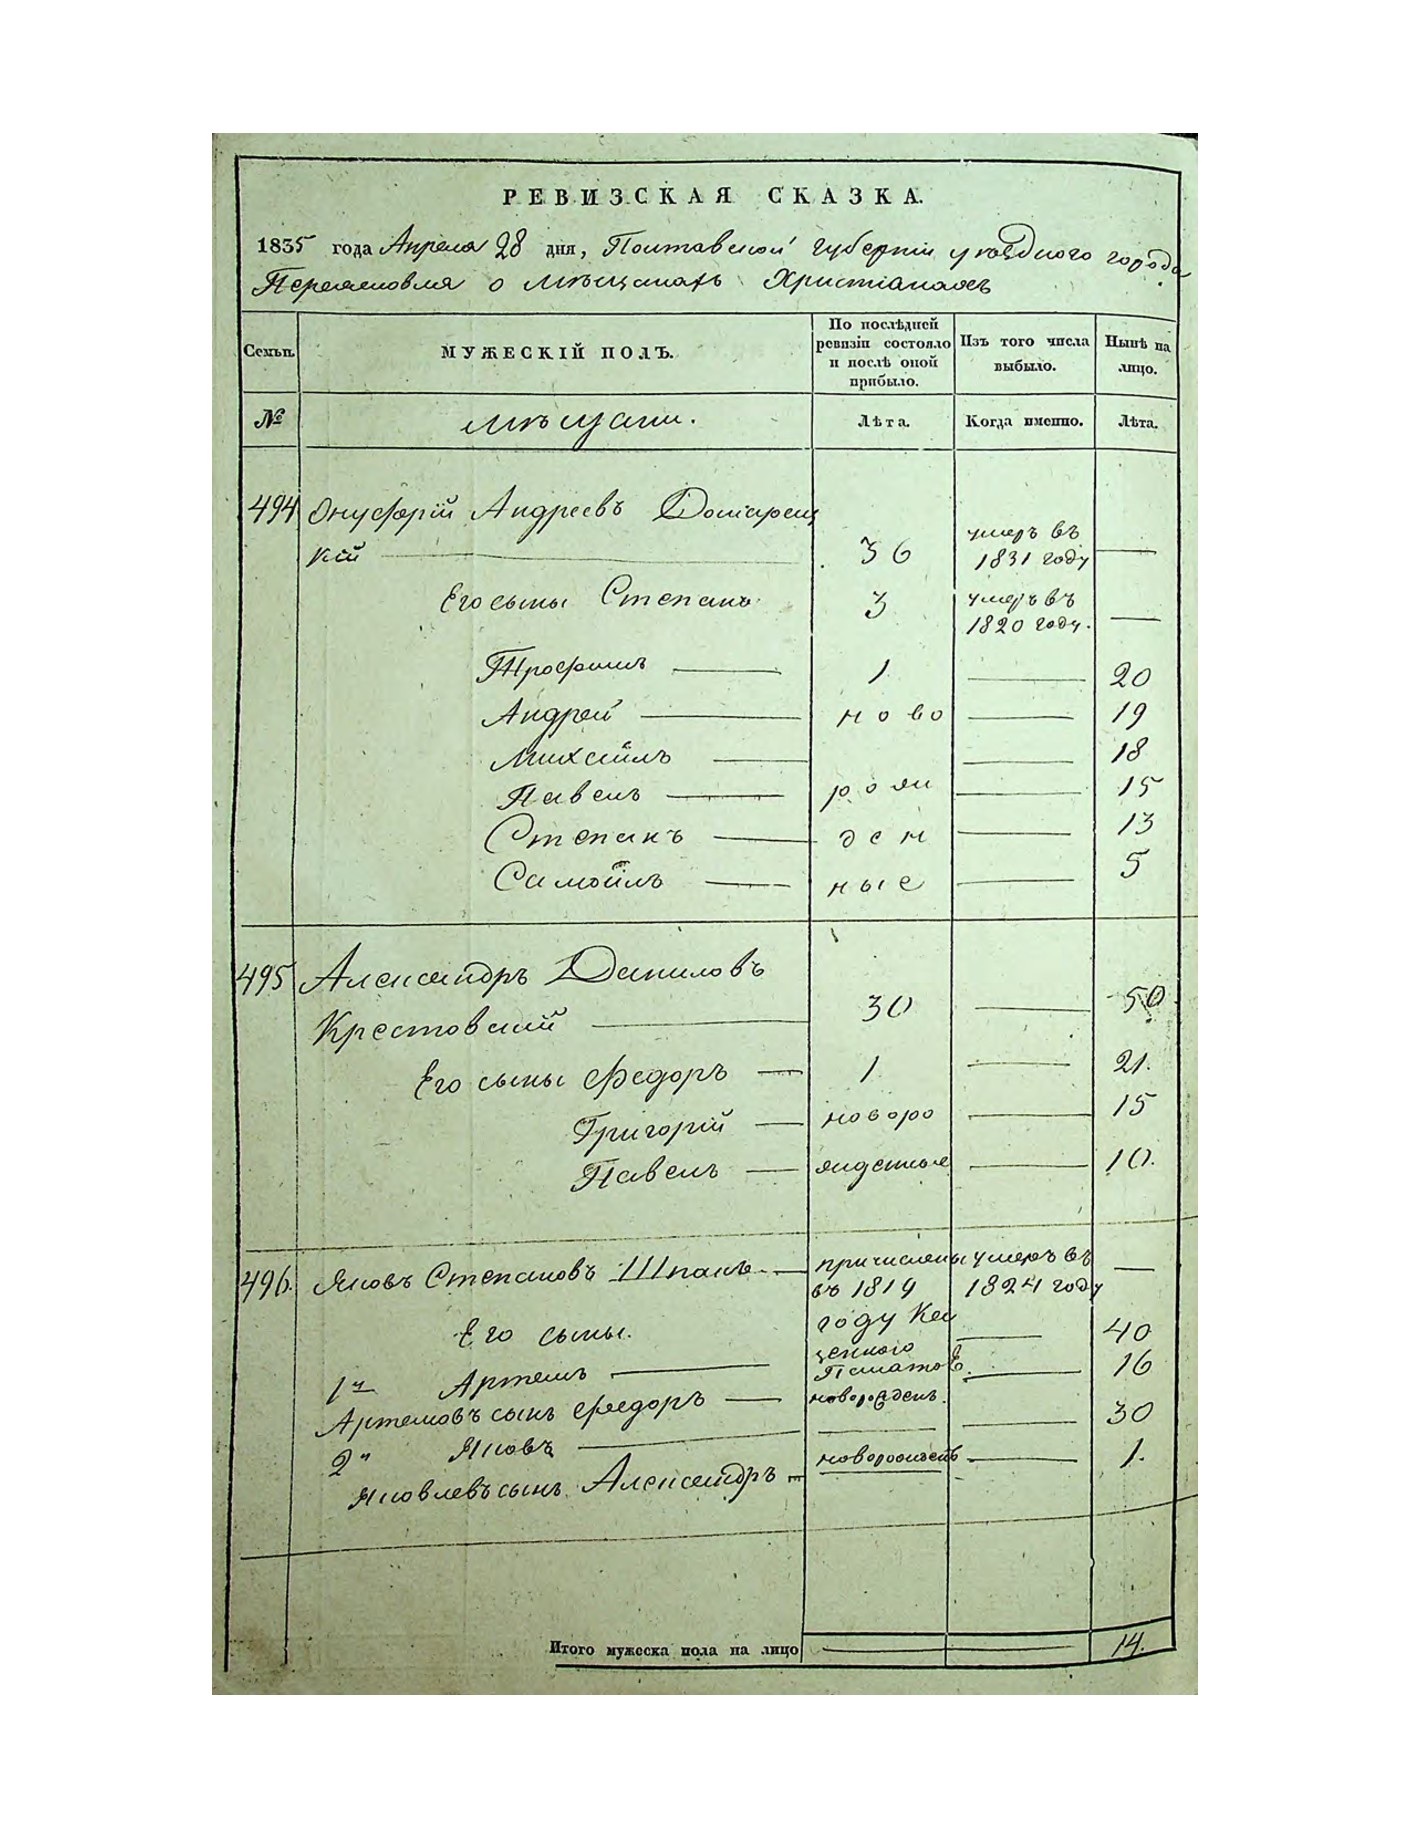 РЕВИЗСКАЯ СКАЗКА.
1835 года Апреля 28 дня, Полтавской губерніи уѣздного города
Переяславля о мѣщанахъ Христіанахъ
Семьи. МУЖЕСКІЙ ПОЛЪ. По послѣдней ревизіи состояло и послѣ оной прибыло. Изъ того числа выбыло. Нынѣ на лицо.
№ мѣщани. Лѣта. Когда именно. Лѣта.
494 Онуфрій Андреевъ
кій 36 умеръ въ 1831 году —
Его сыны Степанъ 3 умеръ въ 1820 году. —
Трофимъ — 1 — 20
Андрей — ново — 19
Михайлъ — — 18
Павелъ — рож — 15
Степанъ — ден — 13
Самойлъ — ные — 5
495 Александръ Даниловъ
Крестовскій — 30 — 50
Его сыны Федоръ — 1 — 21.
Григорій — новоро — 15
Павелъ — жденные — 10.
496. Яковъ Степановъ Шпакъ — причислены въ 1819 умеръ въ 1824 году —
Его сыны. году — 40
1й Артемъ — — 16
Артемовъ сынъ Федоръ — новорожден. — 30
2й Яковъ — — новорожденъ — 1.
Яковлевъ сынъ Александръ —
Итого мужеска пола на лицо — 14.